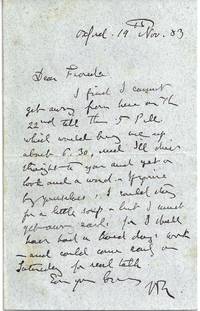 Oxford. 19th Nov. 83
Dear
I find I cannot
get away from here on the
22nd till the 5 P.M.
which would bring me up
about 6.30, and I'll drive
straight to you and get a
look and a word - if you're
by yourselves, I could stay
for a little soup - but I must
get away early, for I shall
have had a hard day's work
- and could come early on
Saturday for real talk